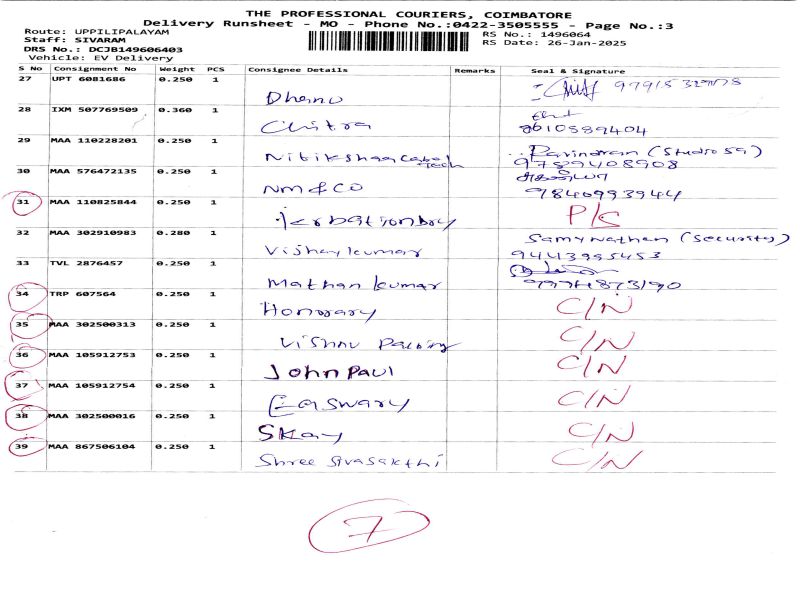 THE PROFESSIONAL COURIERS, COIMBATORE
Delivery Runsheet - MO - Phone No.:0422-3505555 - Page No.:3
Route: UPPILIPALAYAM
Staff: SIVARAM
DRS No.: DCJB149606403
Vehicle: EV Delivery
RS No.: 1496064
RS Date: 26-Jan-2025
S No Consignment No Weight PCS Consignee Details Remarks Seal & Signature
27 UPT 6081686 0.250 1 Dhanu
28 IXM 507769509 0.360 1 Chitra 8610589404
29 MAA 110228201 0.250 1 Tech 9789408908
30 MAA 576472135 0.250 1 NM & CO 9840993944
31 MAA 110825844 0.250 1 P/S
32 MAA 302910983 0.280 1 Vishaykumar Samynathan (Security) 9443955453
33 TVL 2876457 0.250 1 Mathan kumar
34 TRP 607564 0.250 1 Honorary C/N
35 MAA 302500313 0.250 1 Vishnu C/N
36 MAA 105912753 0.250 1 John Paul C/N
37 MAA 105912754 0.250 1 Easwary C/N
38 MAA 302500016 0.250 1 SKay C/N
39 MAA 867506104 0.250 1 Shree Sivasakthi C/N
7